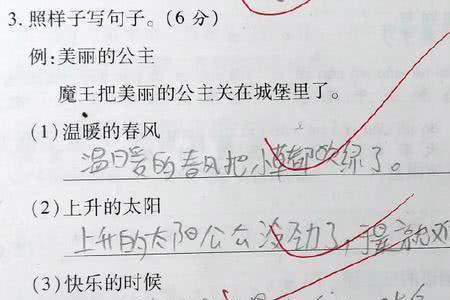 3.照样子写句子。(6分)
例:美丽的公主
魔王把美丽的公主关在城堡里了。
(1)温暖的春风
温暖的春风把小草都吹绿了。
(2)上升的太阳
上升的太阳公公没劲了,
(3)快乐的时候